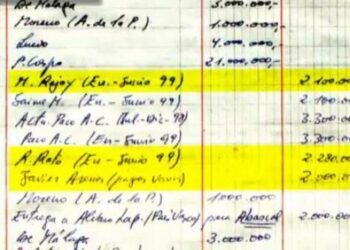 De Málaga 3.000.000-
Moreno (A. de la P.) 1.000.000-
4.000.000-
P. Crespo 21.000.000-
M. Rajoy (En.- Junio 99) 2.100.000
Jaime M. (En.- Junio 99) 2.100.000
Acta. Paco A.C. (Jul-Dic-98) 3.300.000
Paco A-C. (En.- Junio 99) 3.300.000
R. Rato (En.- Junio 99) 2.280.000
Javier Arenas (pagos varios) 2.000.000
Moreno (A. de la P.) 1.000.000
Entrega a (País Vasco) para Abascal 2.000.000
De Málaga 3.000.000